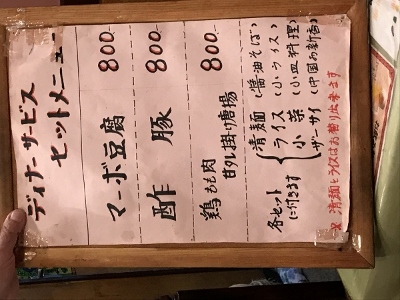 ディナーサービス
セットメニュー
マーボ豆腐 800-
酢豚 800-
鶏もも肉
甘タレ掛け唐揚 800-
各セット
に付きます
清麺 (醤油そば)
ライス (小ライス)
小菜 (小皿料理)
ザーサイ (中国お新香)
※ 清麺とライスはお替り出来ます